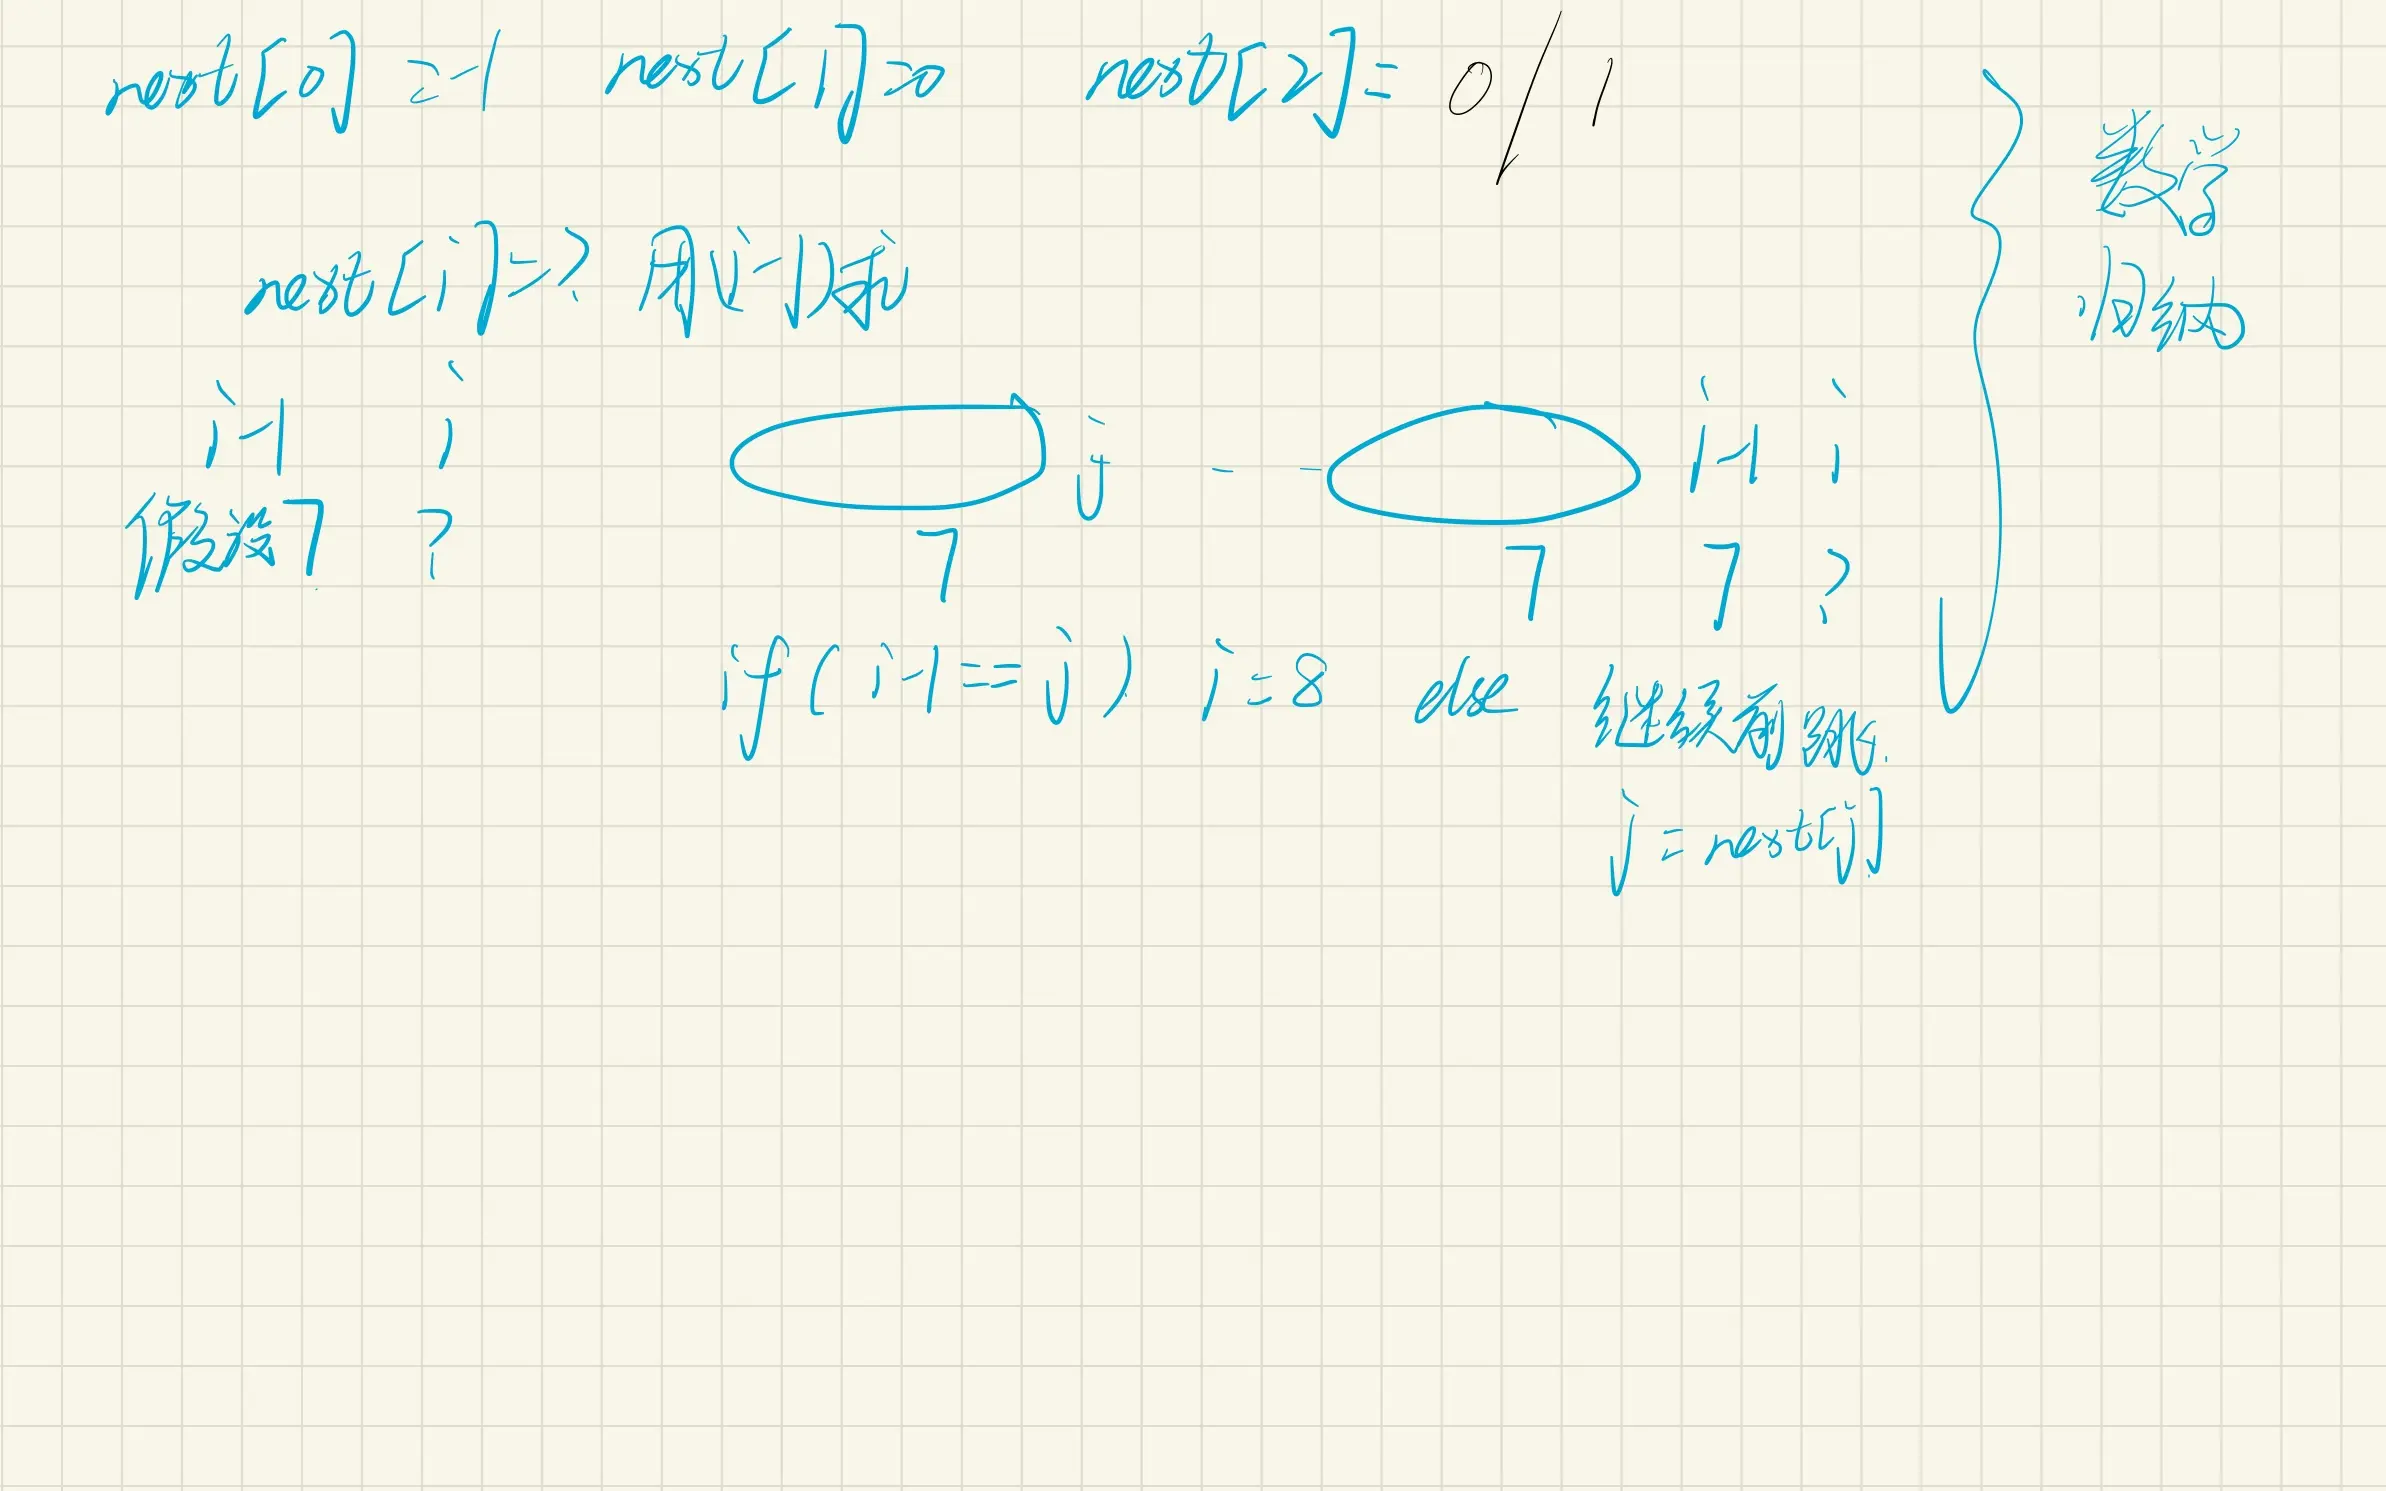 next[0] = -1 next[1] = 0 next[2] = 0 / 1
数学
归纳
next[i] => ? 用(i-1)求
i-1 i j -- i-1 i
假设7 ? 7 7 7 ?
if( i-1 == j ) i = 8 else 继续前跳.
j = next[j]